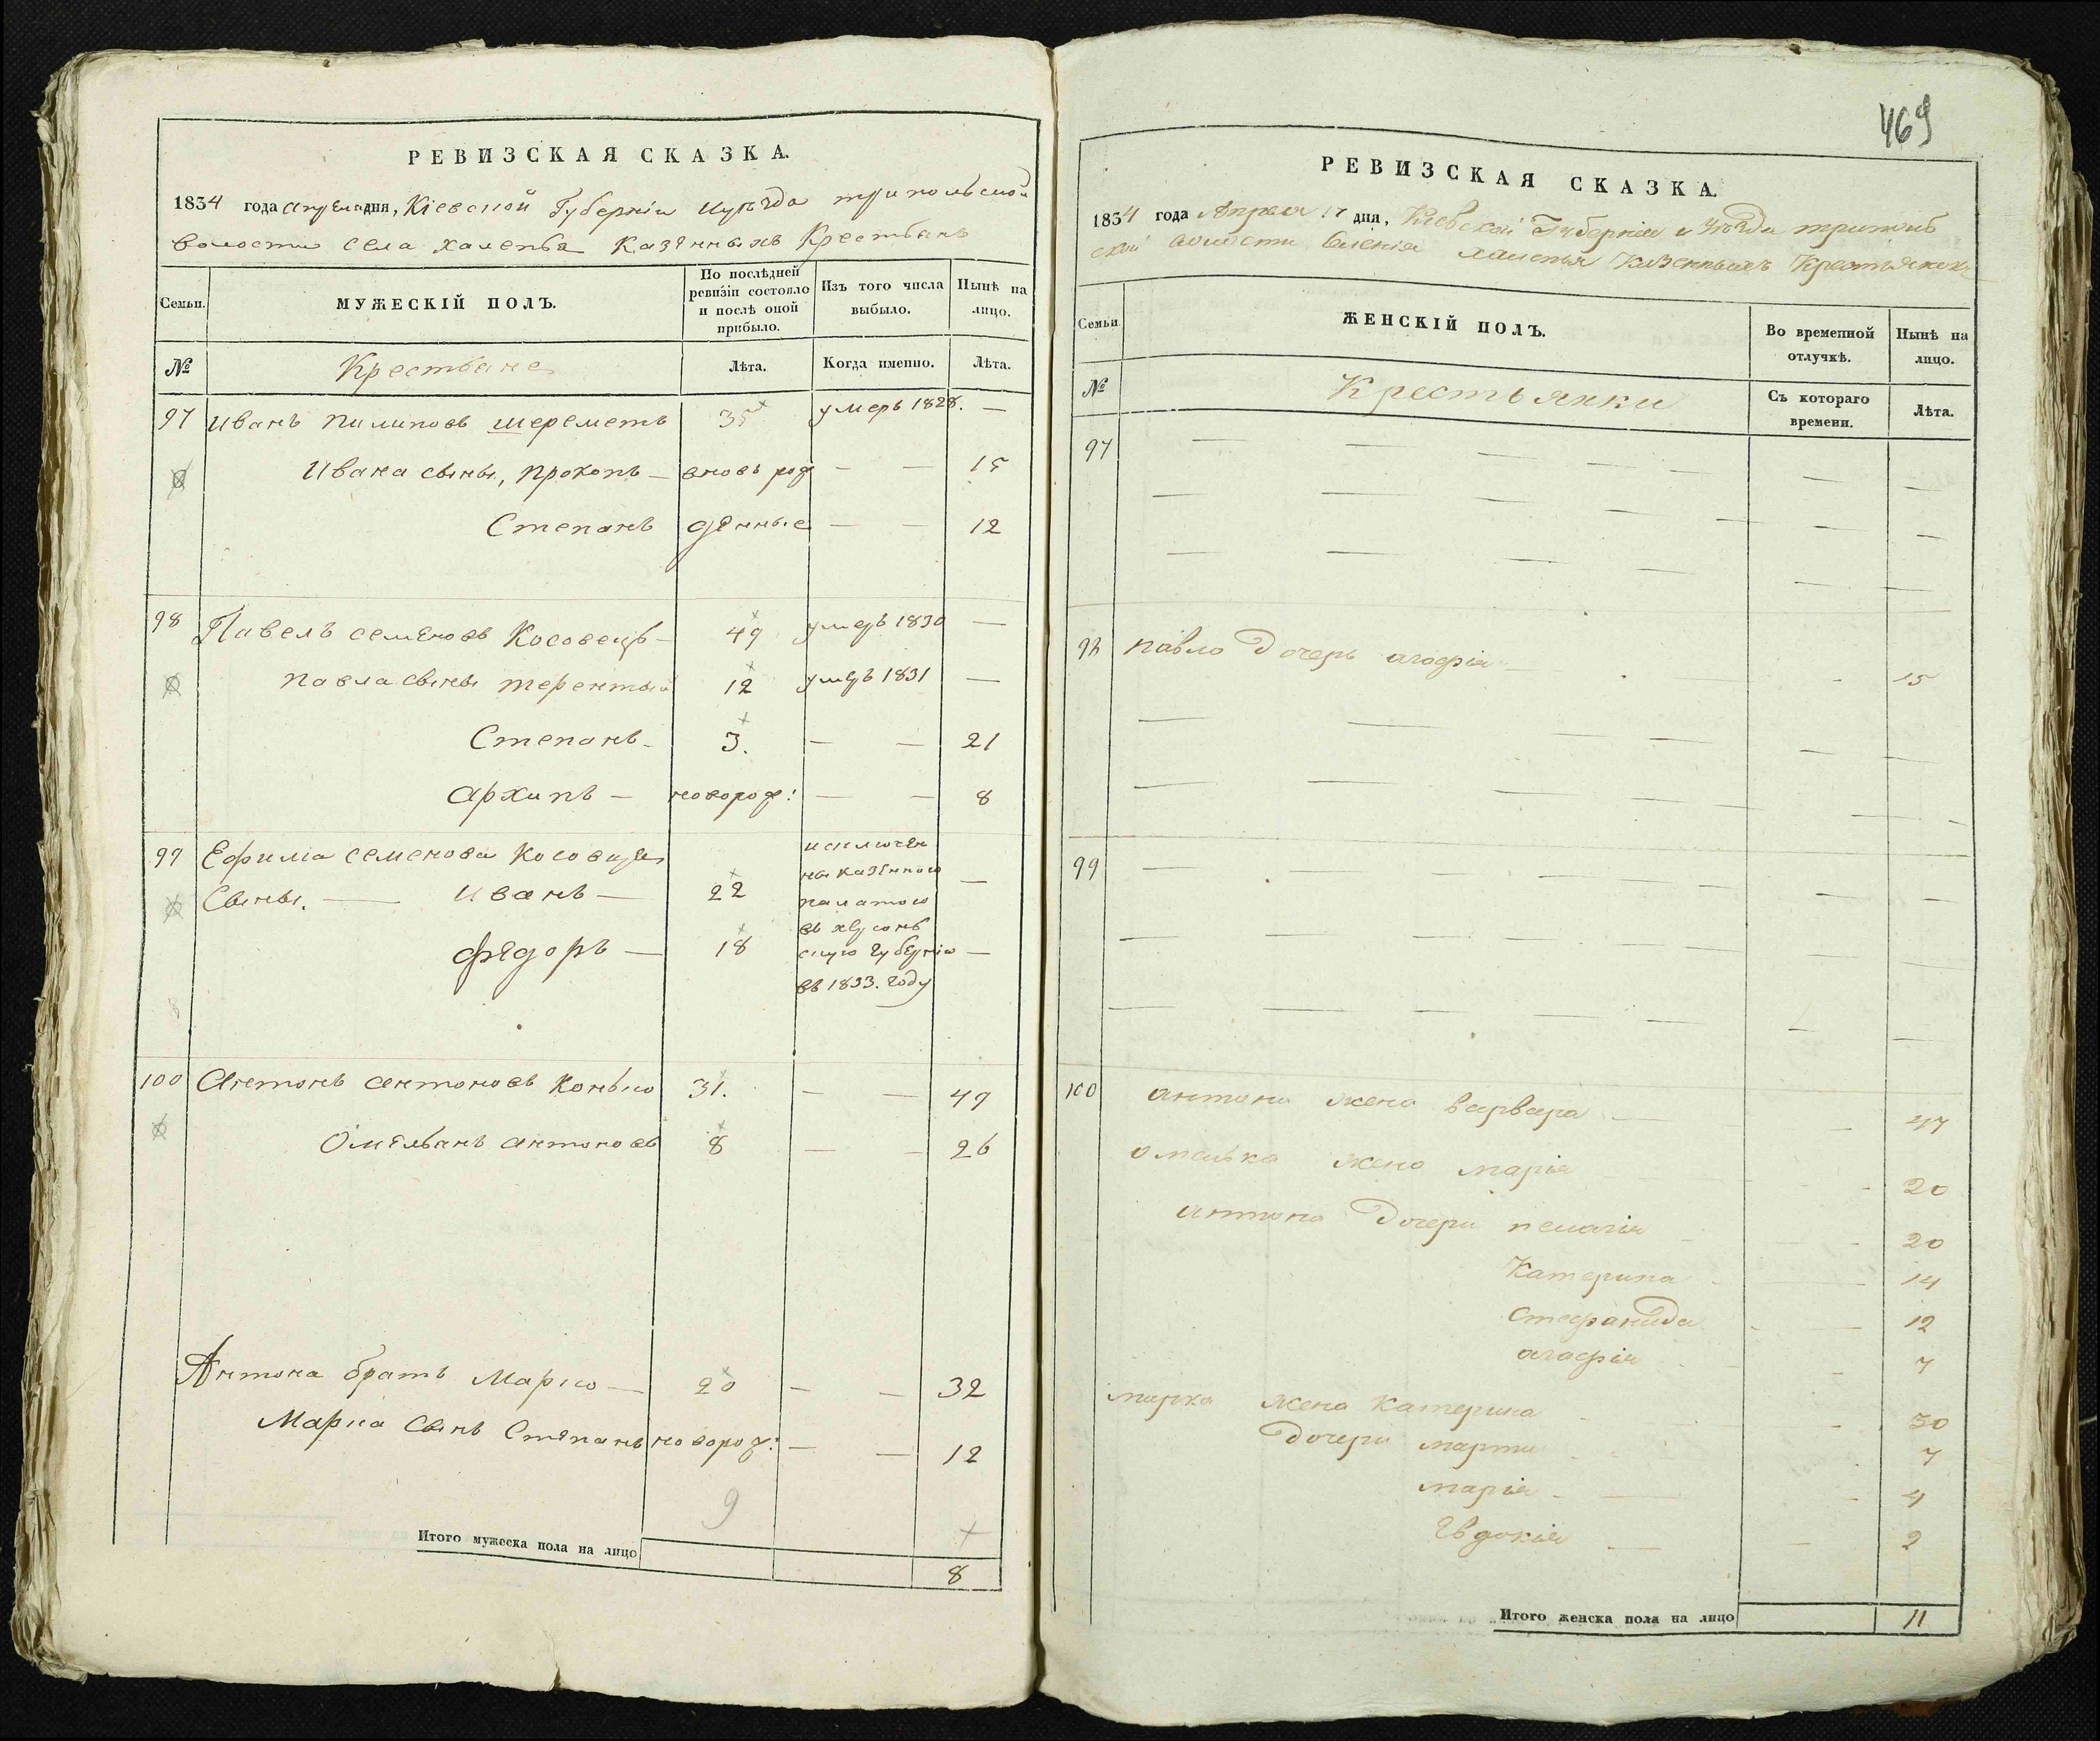 РЕВИЗСКАЯ СКАЗКА.
1834 года апреля дня, Кіевской Губерніи и уѣзда трипольской
волости села халепья Казенныхъ Крестьянъ
Семьи.
МУЖЕСКІЙ ПОЛЪ.
По послѣдней ревизіи состояло и послѣ оной прибыло.
Изъ того числа выбыло.
Нынѣ на лицо.
№
Крестьяне
Лѣта.
Когда именно.
Лѣта.
97 Иванъ пилиповъ шереметъ 35 умеръ 1828. —
Ивана сыны, прокопъ — вновь рож — — 15
Степанъ денные — — 12
98 Павелъ семеновъ Косовецъ — 49 умеръ 1830 —
павла сыны терентый 12 умеръ 1831 —
Степанъ — 3. — — 21
архипъ — новорож: — — 8
99 Ефима семенова Косовца
Сыны. — Иванъ — 22 —
исключен
ны казенною
палатою
въ херсонь
скую губернію
въ 1833. году
федоръ — 18 —
100 Антонъ антоновъ Конько 31. — — 49
Омельянъ антоновъ 8 — — 26
Антона братъ Марко — 20 — — 32
Марка сынъ Степанъ новорож: — — 12
9
Итого мужеска пола на лицо
8
469
РЕВИЗСКАЯ СКАЗКА.
1834 года Апреля 17 дня, Кіевской Губерніи и Уѣзда триполь
ской волости селенія халепья Казенныхъ Крестьянокъ
Семьи
ЖЕНСКІЙ ПОЛЪ.
Во временной отлучкѣ.
Нынѣ на лицо.
№
Крестьянки
Съ котораго времени.
Лѣта.
97
98 павло дочерь агафія — 15
99
100 антона жена варвара — 47
омелька жена марія 20
антона дочери пелагія 20
Катерина 14
стефанида 12
агафія 7
марка жена катерина 30
дочери марта 7
марія 4
Евдокія 2
Итого женска пола на лицо 11